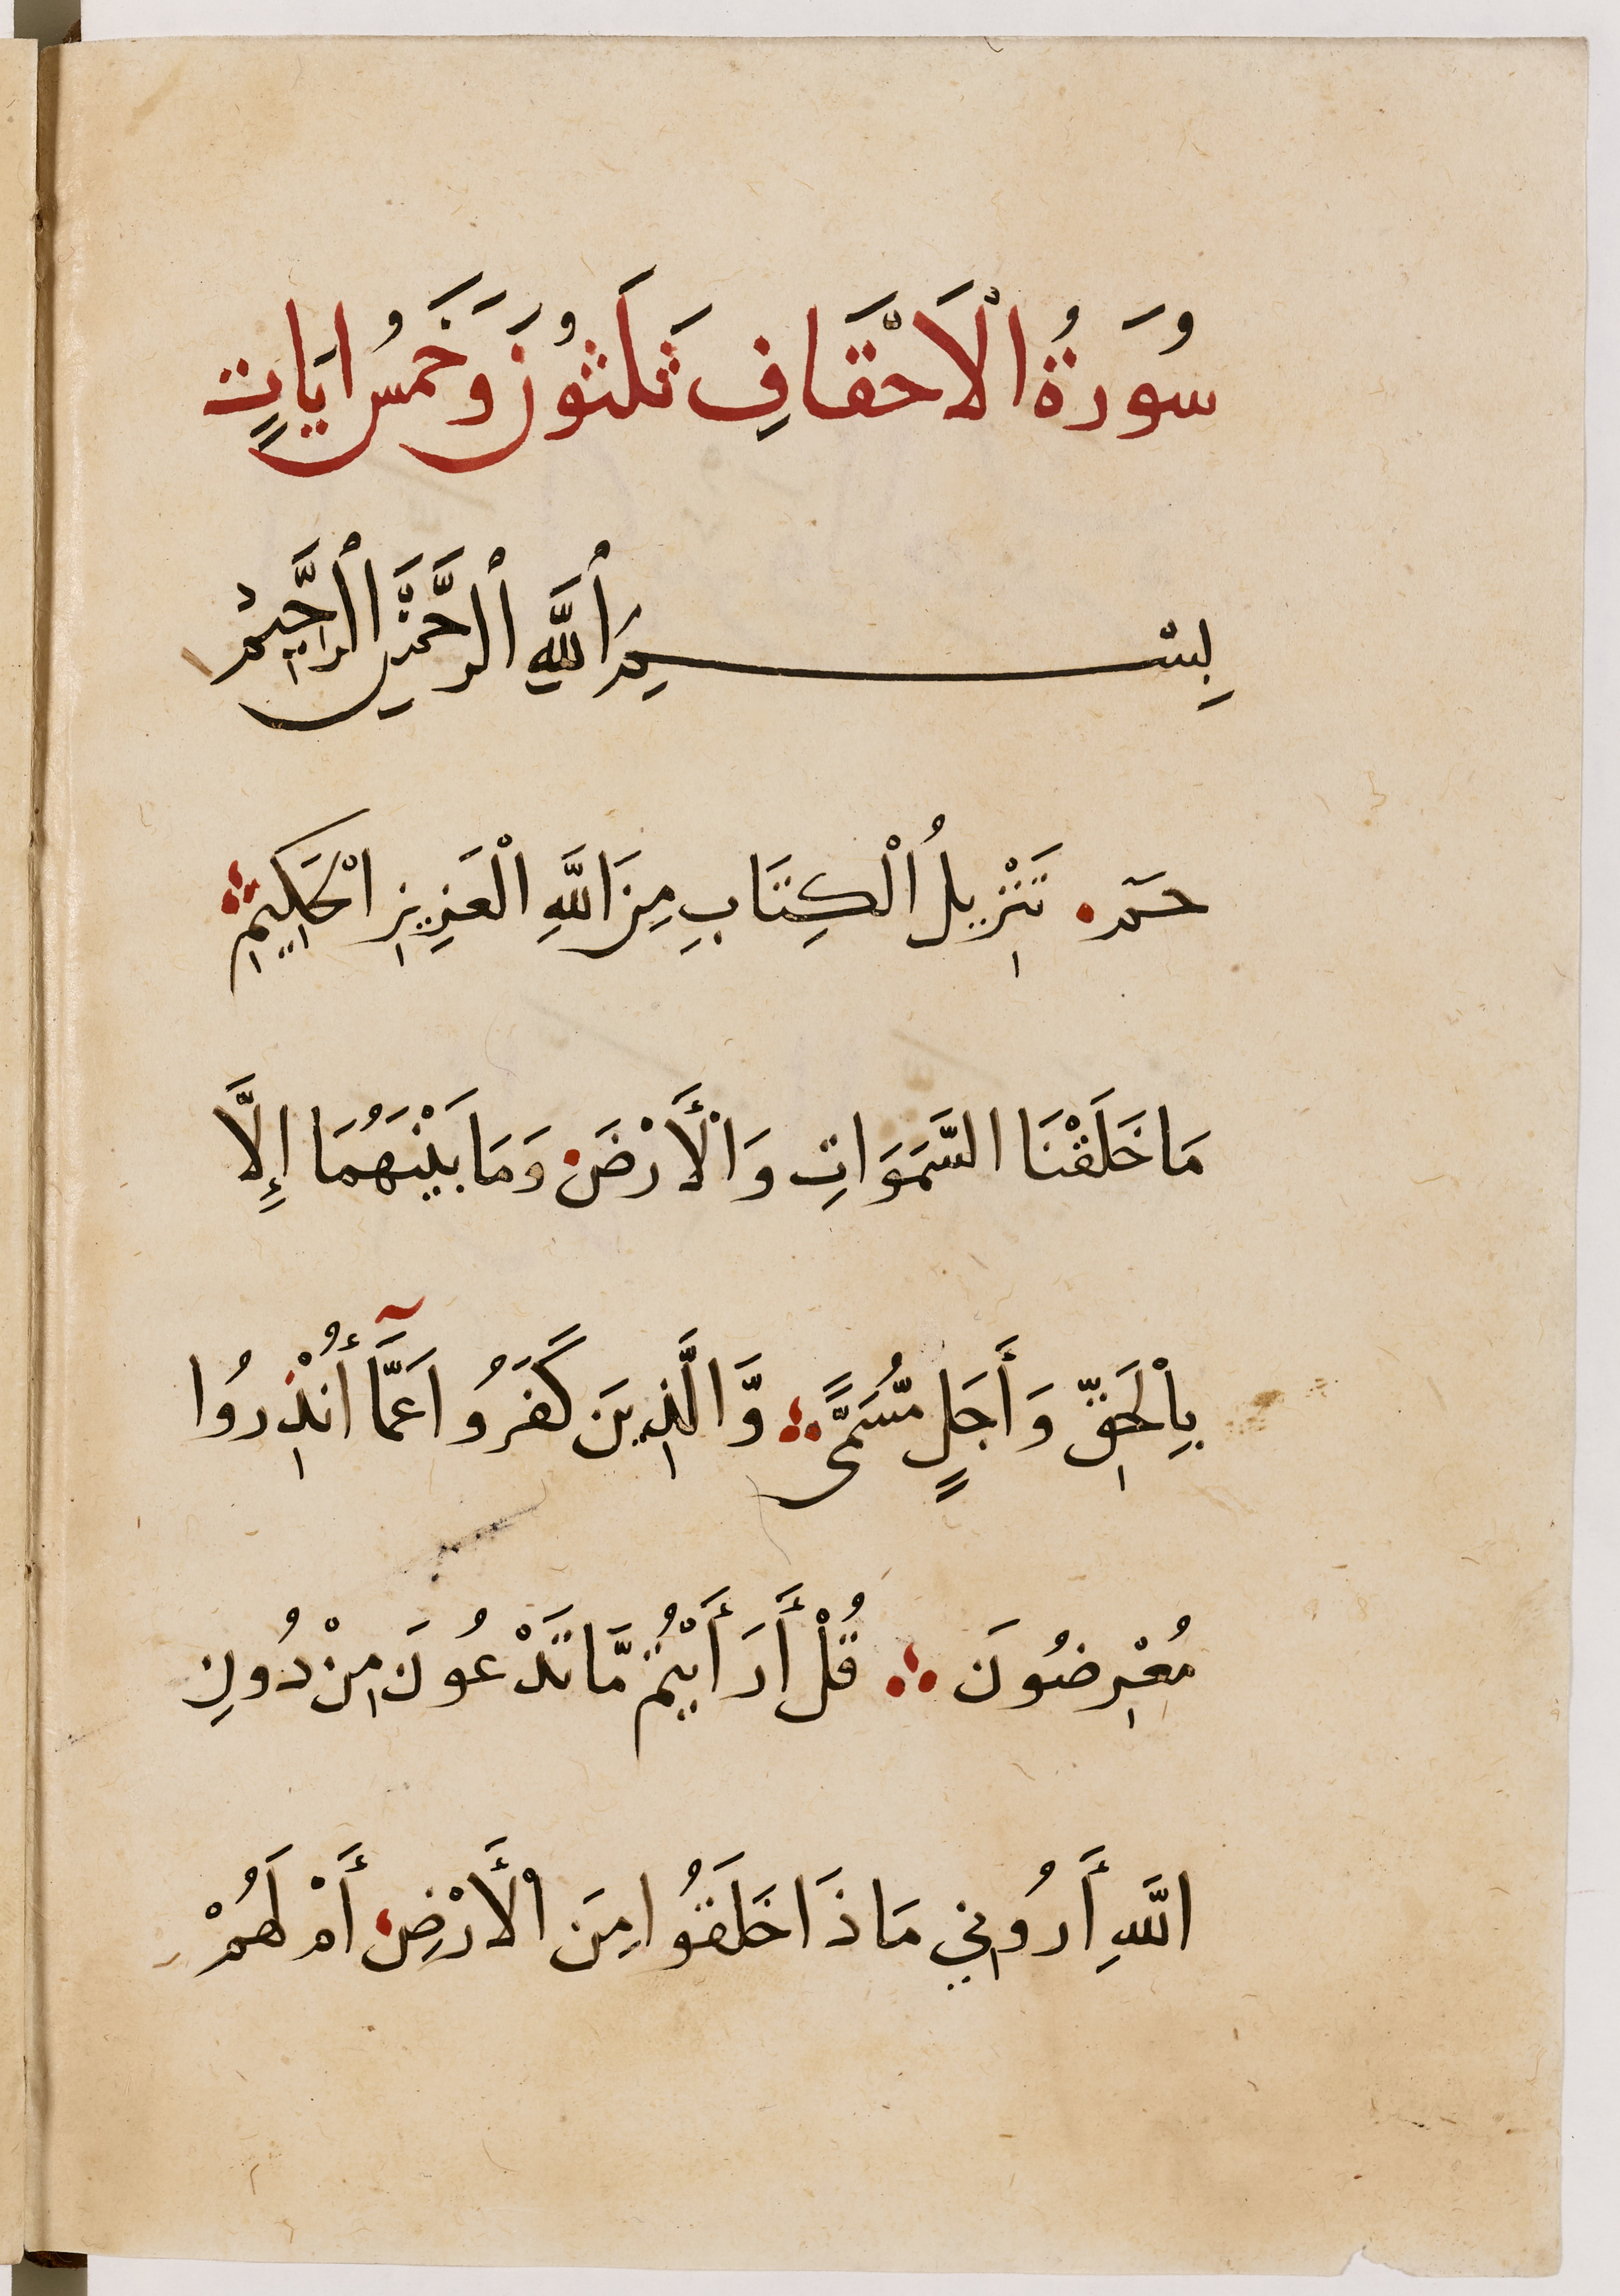 سُورَةُ الْاَحْقَافِ ثَلَثُونَ وَخَمْسُ ايَاتٍ
بِسْمِ اللَّهِ الرَّحْمَنِ الرَّحِيمِ
حم تَنْزِيلُ الْكِتَابِ مِنَ اللَّهِ الْعَزِيزِ الْحَكِيمِ
مَا خَلَقْنَا السَّمَوَاتِ وَالْأَرْضَ وَمَا بَيْنَهُمَا إِلَّا
بِالْحَقِّ وَأَجَلٍ مُّسَمًّى وَّالَّذِينَ كَفَرُوا عَمَّا أُنْذِرُوا
مُعْرِضُونَ قُلْ أَرَأَيْتُمْ مَّا تَدْعُونَ مِنْ دُونِ
اللَّهِ أَرُونِي مَاذَا خَلَقُوا مِنَ الْأَرْضِ أَمْ لَهُمْ